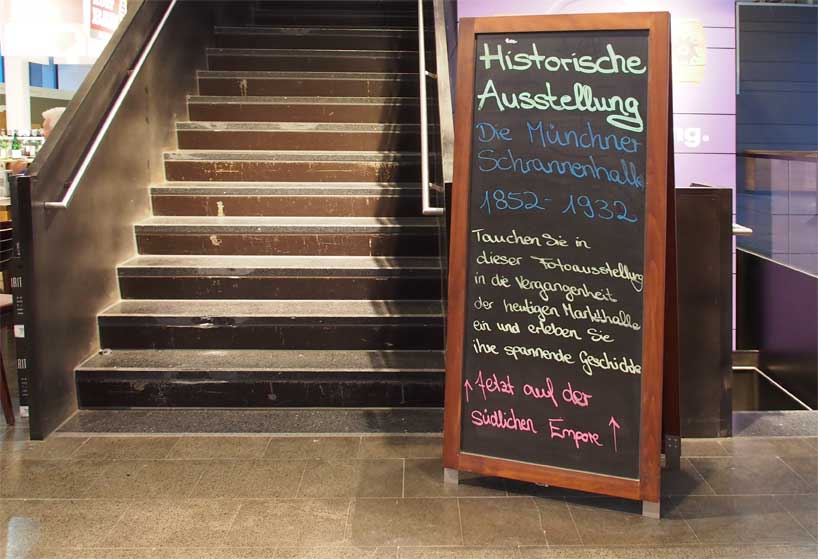 Historische
Ausstellung
Die Münchner
Schrannenhalle
1852-1932
Tauchen Sie in
dieser Fotoausstellung
in die Vergangenheit
der heutigen Markthalle
ein und erleben Sie
ihre spannende Geschichte
↑ Jetzt auf der
südlichen Empore ↑